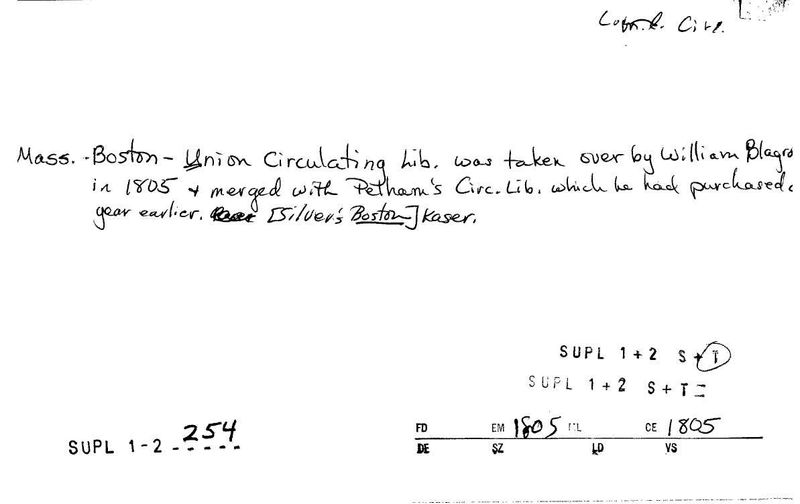 Com.l. Circ.
Mass. - Boston - Union Circulating Lib. was taken over by William Blagro
in 1805 + merged with Pelham's Circ. Lib. which he had purchased
year earlier. [Silver's Boston] Kaser.
SUPL 1+2 S+T
SUPL 1+2 S+T=
SUPL 1-2 254
FD EM 1805 CE 1805
DE SZ LD VS